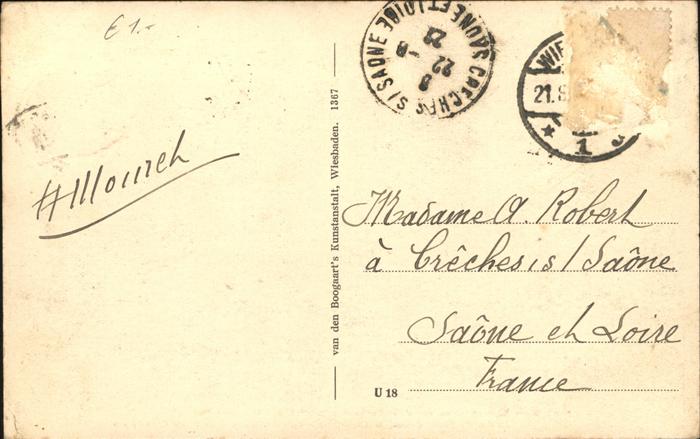 € 1.-
CRECHES S/SAONE
SAONE ET LOIRE
8
22
8
23
WIE
21.8
* 1
Madame A. Robert
à Crêches s/Saône
Saône et Loire
France
van den Boogaart's Kunstanstalt, Wiesbaden. 1367
U 18